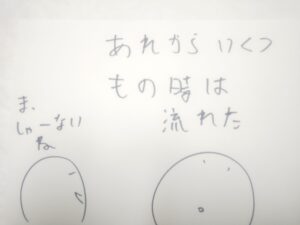 あれからいくつ
もの時は
流れた
ま、
しゃーない
ね